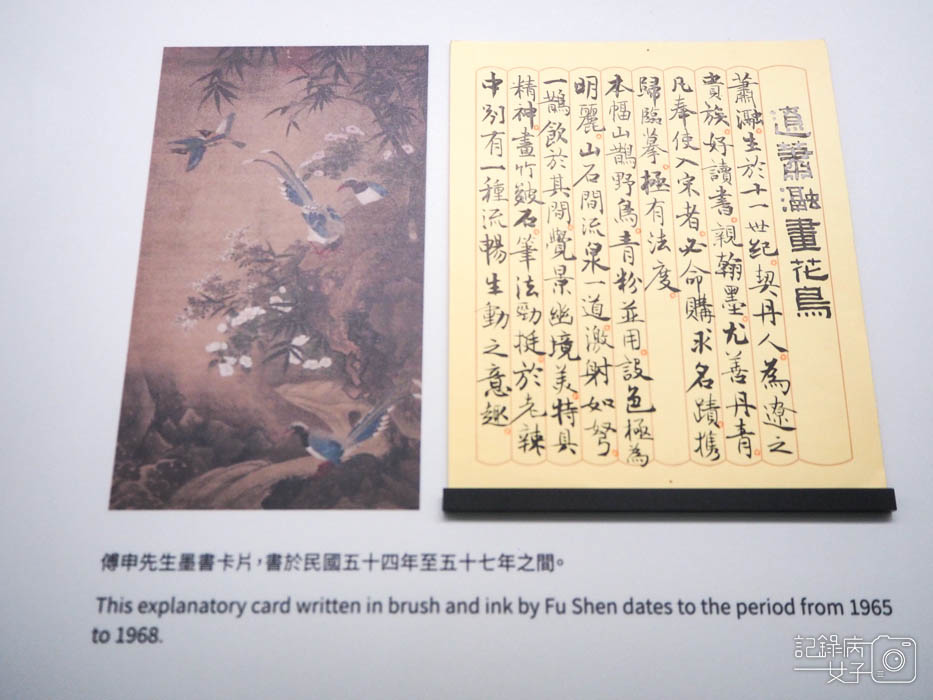 遼蕭瀜畫花鳥
蕭瀜生於十一世紀契丹人為遼之
貴族好讀書親翰墨尤善丹青
凡奉使入宋者必命購求名蹟攜
歸臨摹極有法度
本幅山鵲野鳥青粉並用設色極為
明麗山石間流泉一道激射如弩
一鵲飲於其間覺景幽境美特具
精神畫竹皴石筆法勁挺於老辣
中別有一種流暢生動之意趣
傅申先生墨書卡片，書於民國五十四年至五十七年之間。
This explanatory card written in brush and ink by Fu Shen dates to the period from 1965
to 1968.
記錄病
女子